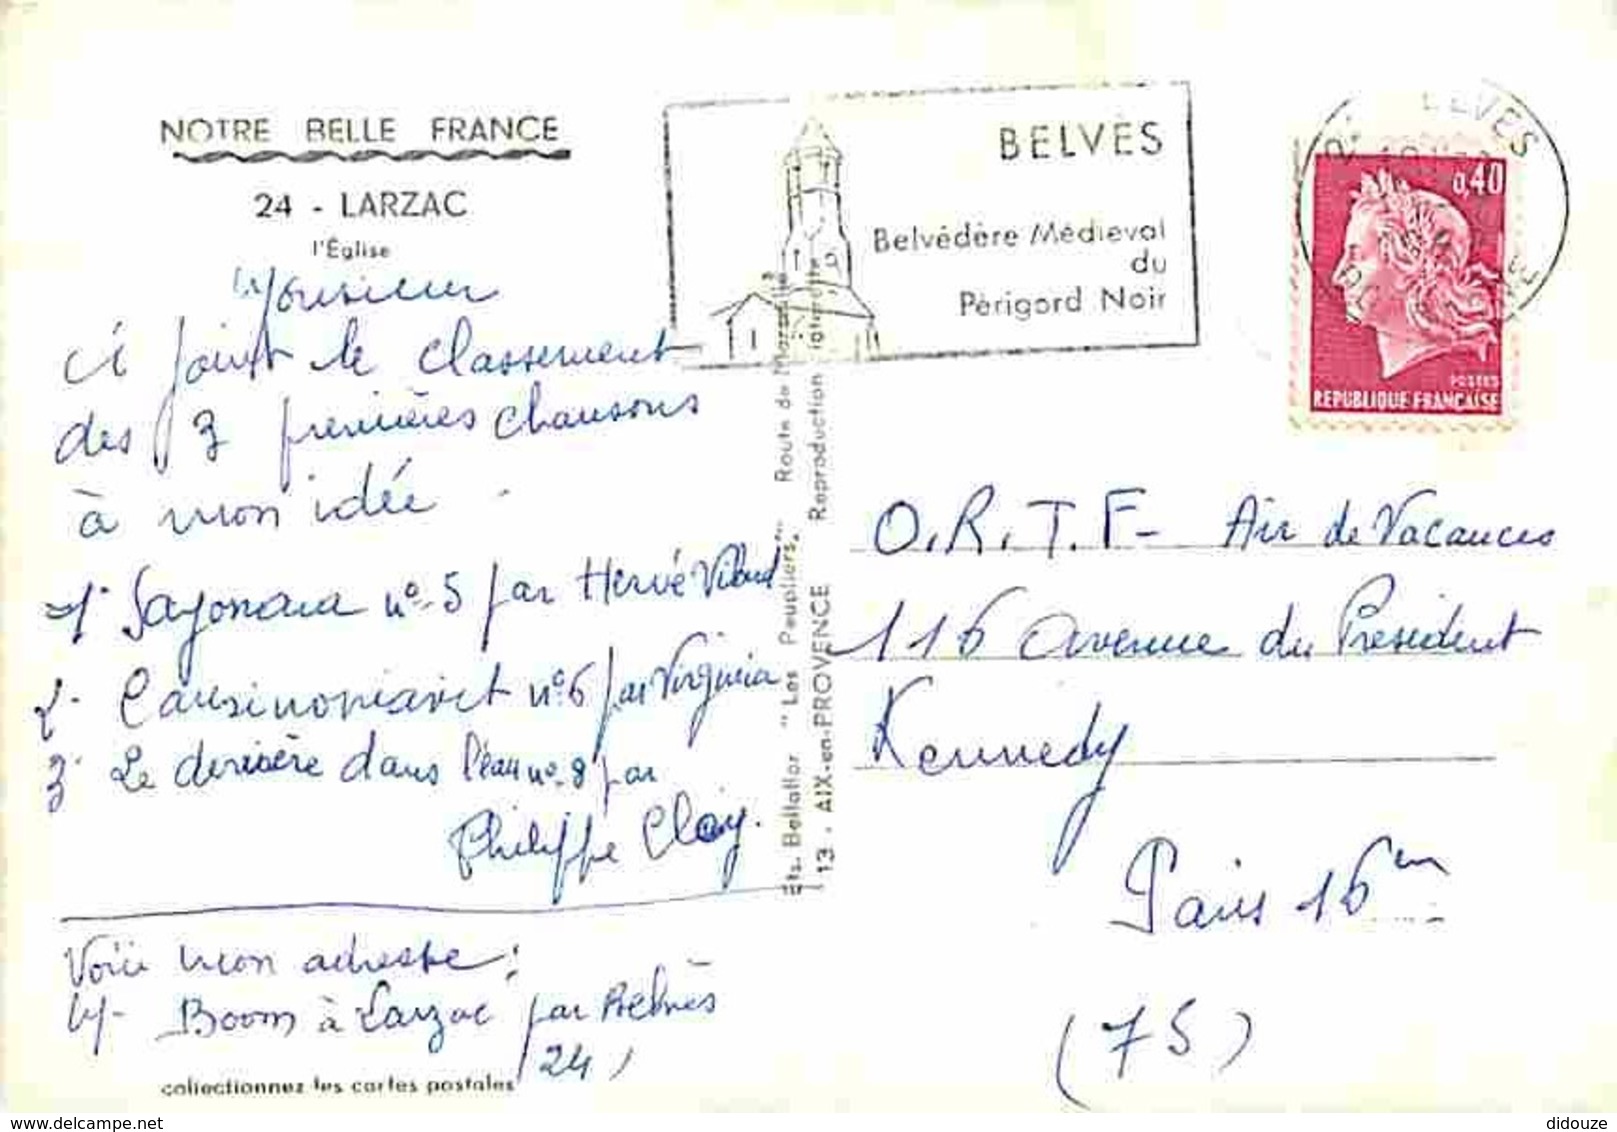 NOTRE BELLE FRANCE
24 - LARZAC
l'Église
Monsieur
ci joint le classement
des 3 premières chansons
à mon idée
1° Sayonara n°-5 par Hervé Vilard
2- n°6 par Virginia
3 Le derrière dans l'eau n°-8 par
Philippe Clay.
Voici mon adresse :
Boom à Larzac par Belvès
24
collectionnez les cartes postales
Ets. Bellaffor "Les Peupliers," Route de Marseille
13 - AIX-en-PROVENCE Reproduction interdite
BELVÈS
Belvédère Médiéval
du
Périgord Noir
BELVES
0,40
POSTES
REPUBLIQUE FRANÇAISE
O.R.T.F- Air de Vacances
116 avenue du President
Kennedy
Paris 16em
(75)
didouze